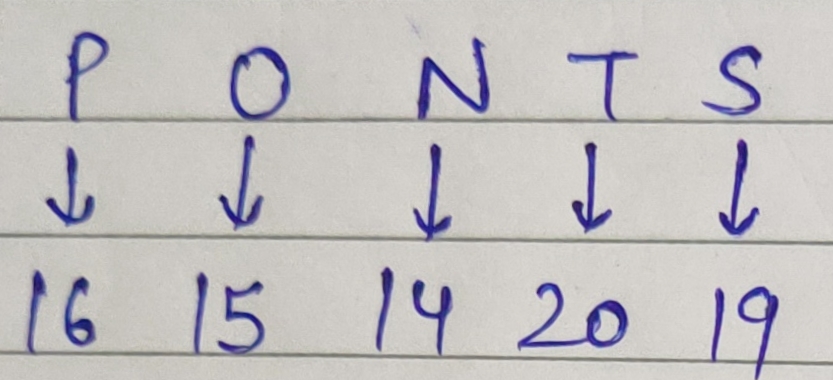 P O N T S
↓ ↓ ↓ ↓ ↓
16 15 14 20 19